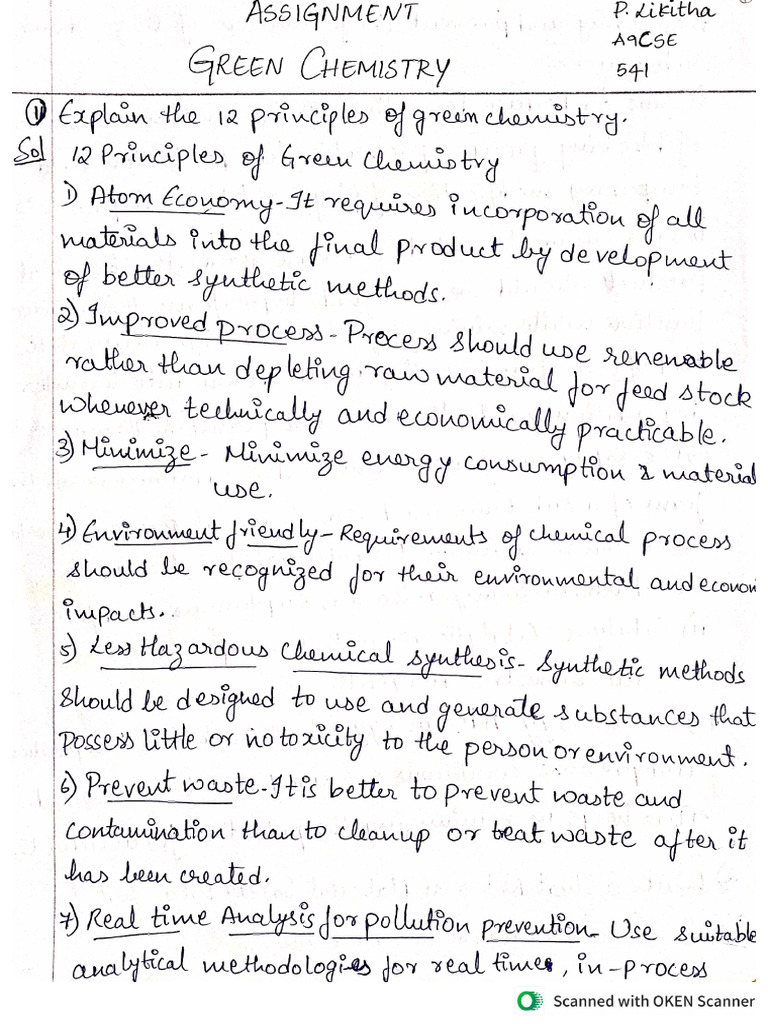 ASSIGNMENT
P. Likitha
A9CSE
GREEN CHEMISTRY
541
1) Explain the 12 principles of green chemistry.
Sol 12 Principles of Green Chemistry
1) Atom Economy - It requires incorporation of all
materials into the final product by development
of better synthetic methods.
2) Improved process - Process should use renewable
rather than depleting raw material for feed stock
whenever technically and economically practicable.
3) Minimize - Minimize energy consumption & material
use.
4) Environment friendly - Requirements of chemical process
should be recognized for their environmental and econom
impacts.
5) Less Hazardous Chemical synthesis - Synthetic methods
should be designed to use and generate substances that
possess little or no toxicity to the person or environment.
6) Prevent waste - It is better to prevent waste and
contamination than to cleanup or treat waste after it
has been created.
7) Real time Analysis for pollution prevention - Use suitable
analytical methodologies for real time, in-process
Scanned with OKEN Scanner